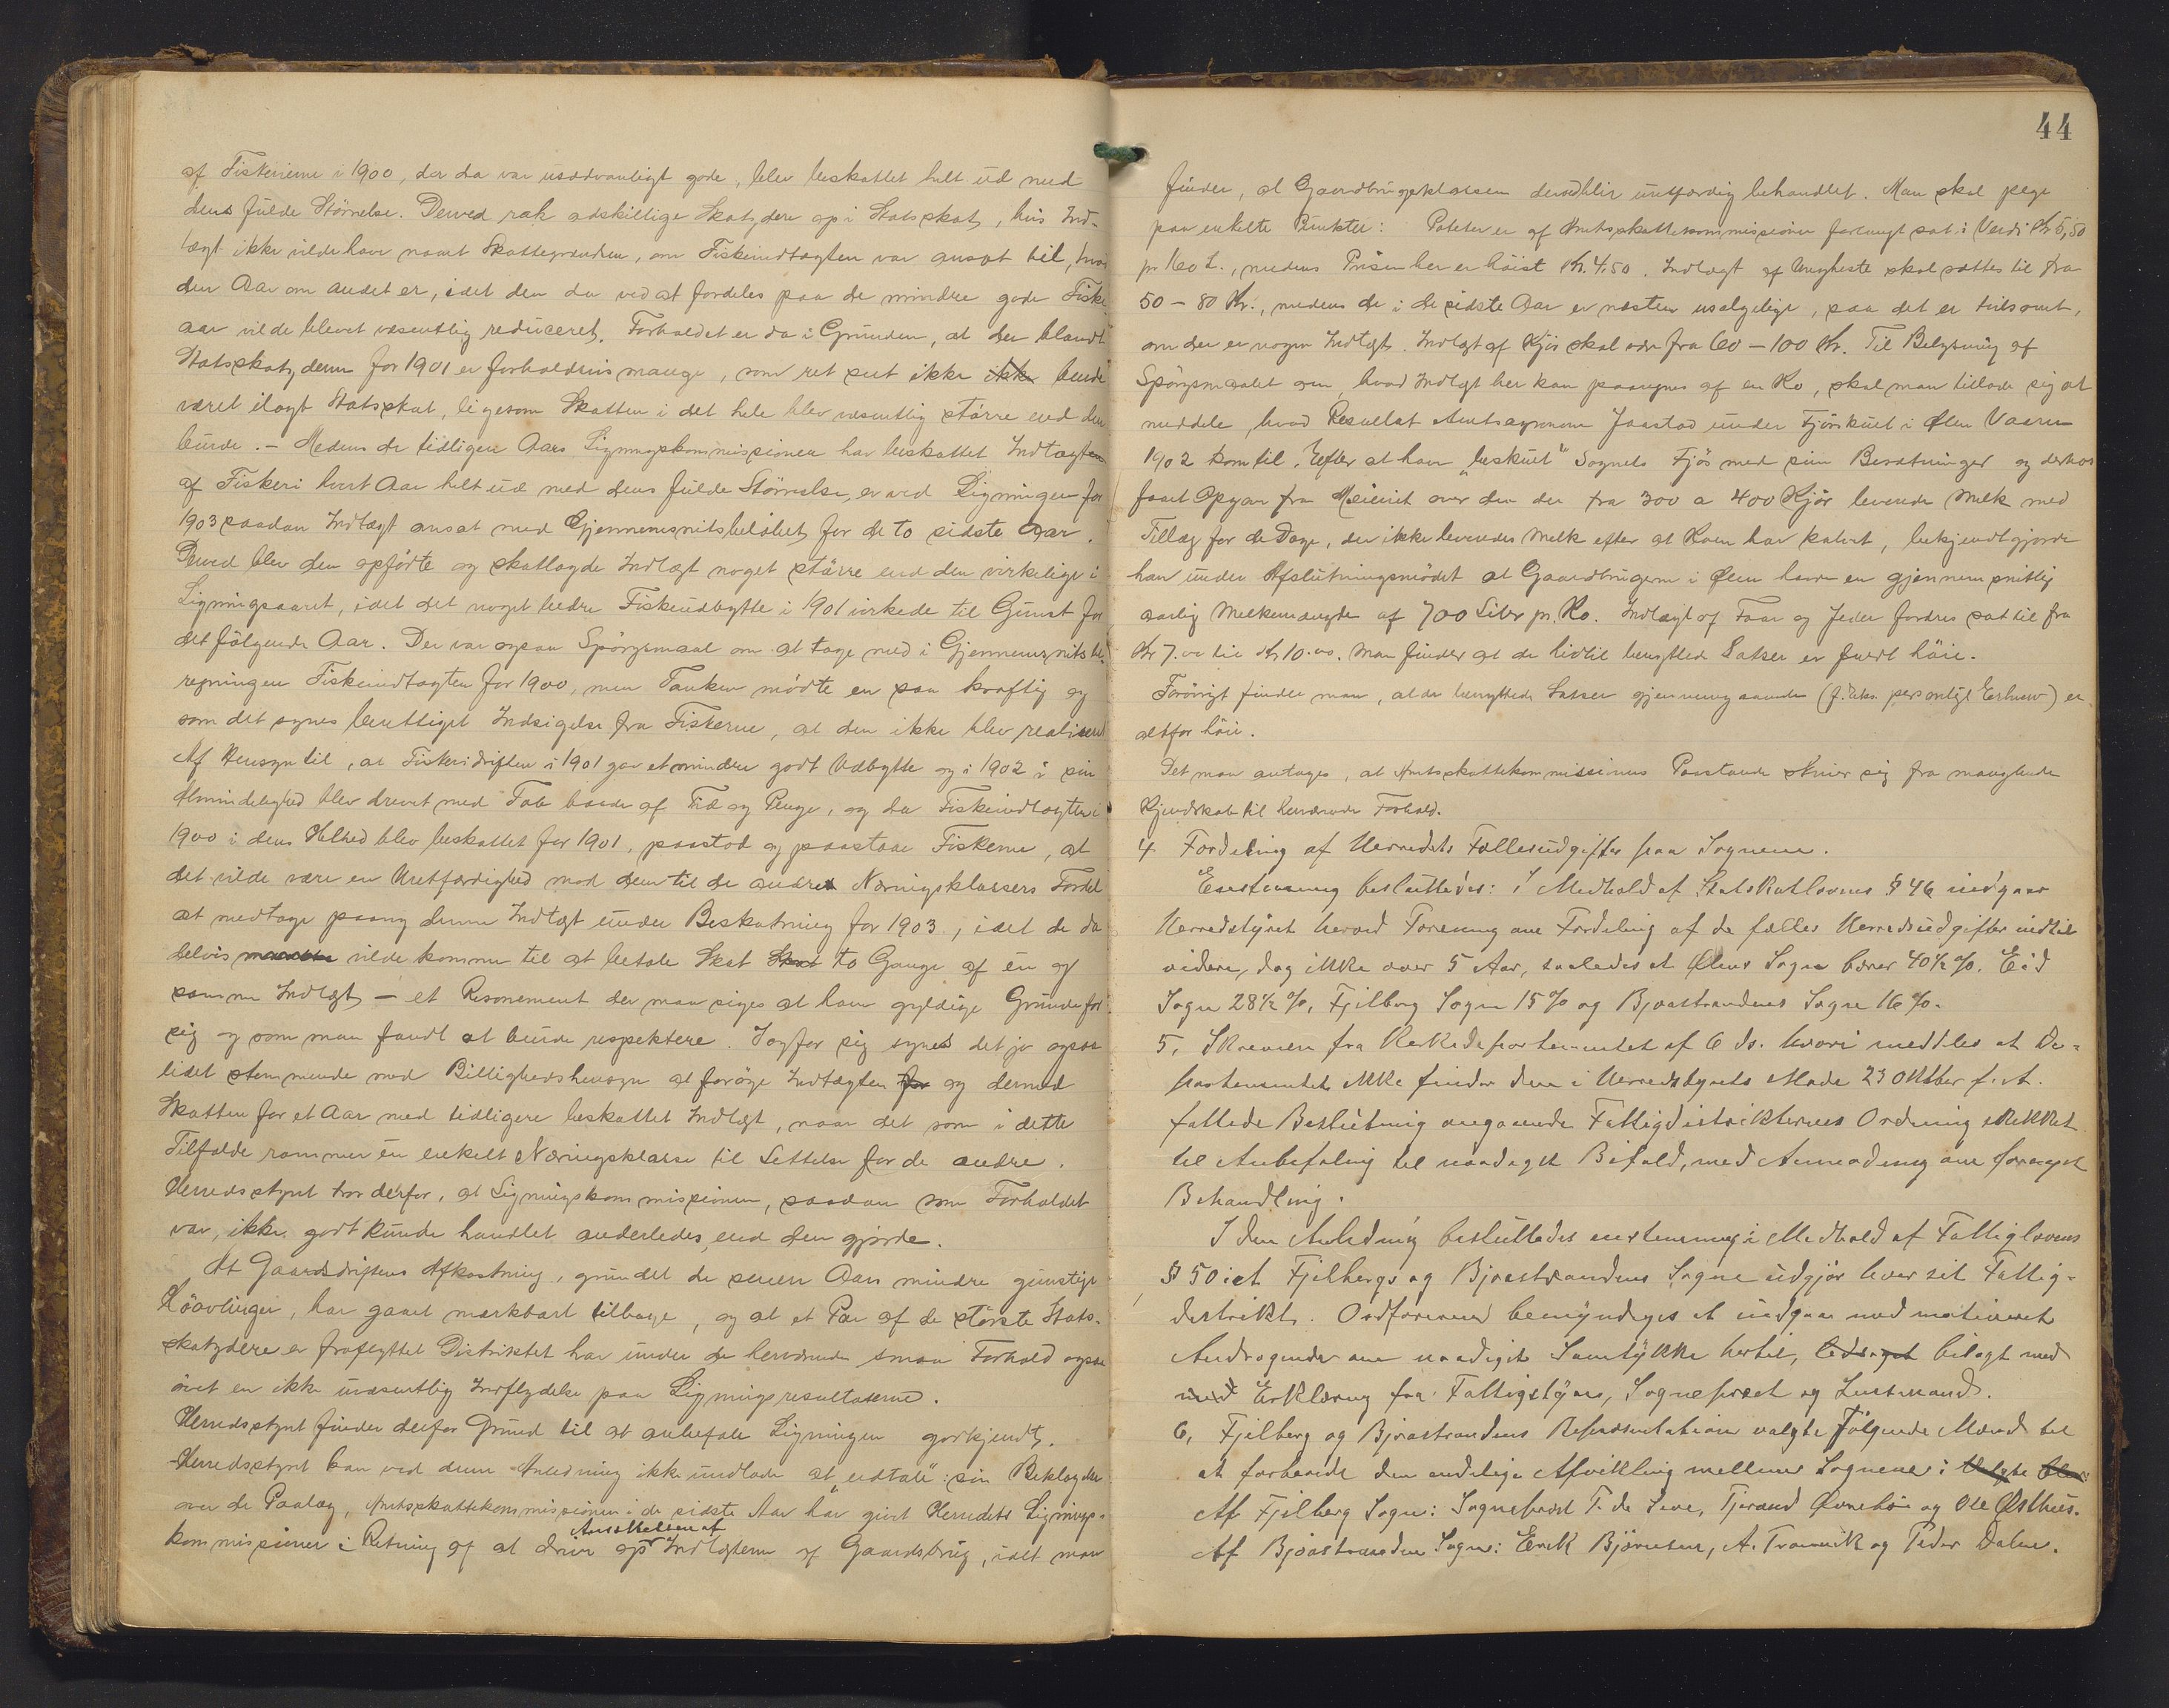 af Fiskerierne i 1900, der da var usædvanligt gode, blev beskattet helt ud med
dens fulde Störrelse. Derved rak adskillige Skatydere op i Statsskat, hvis Ind-
tægt ikke vilde have naaet Skattegrændsen, om Fiskeindtægten var ansat til, hvad
den Aar om andet er, idet den da ved at fordeles paa de mindre gode Fiske-
aar vilde blevet væsentlig reduceret. Forholdet er da i Grunden, at der blandt
Statsskatyderne for 1901 er forholdsvis mange, som ret seet ikke ikke burde
været ilagt Statsskat, ligesom Skatten i det hele blev væsentlig större end den
burde. – Medens de tidligere Aars Ligningskommissioner har beskattet Indtægten
af Fiskeri hvert Aar helt ud med dens fulde Störrelse, er ved Ligningen for
1903 saadan Indtægt ansat med Gjennemsnitsbelöbet for de to sidste Aar.
Derved blev den opförte og skatlagde Indtægt noget större end den virkelige i
Ligningsaaret, idet det noget bedre Fiskeudbytte i 1901 virkede til Gunst for
det fölgende Aar. Der var ogsaa Spörgsmaal om at tage med i Gjennemsnitsbe-
regningen Fiskeindtægten for 1900, men Tanken mödte en saa kraftig og
som det synes berettiget Indsigelse fra Fiskerne, at den ikke blev realiseret
Af Hensyn til, at Fiskeridriften i 1901 gav et mindre godt Udbytte og i 1902 i sin
Almindelighed blev drevet med Tab baade af Tid og Penge, og da Fiskeindtægten i
1900 i dens Helhed blev beskattet for 1901, paastod og paastaar Fiskerne, at
det vilde være en Uretfærdighed mod dem til de andre Næringsklassers Fordel
at medtage paany denne Indtægt under Beskatning for 1903, idet de da
delvis vilde komme til at betale Skat to Gange af én og
samme Indtægt – et Resonement der maa siges at have gyldige Grunde for
sig og som man fandt at burde respektere. I og for sig synes det jo ogsaa
lidet stemmende med Billighedshensyn at foröge Indtægten for og dermed
Skatten for et Aar med tidligere beskattet Indtægt, naar det som i dette
Tilfælde rammer én enkelt Næringsklasse til Lettelse for de andre.
Herredsstyret tror derfor, at Ligningskommissionen, saadan som Forholdet
var, ikke godt kunde handlet anderledes, end den gjorde.
At Gaardsdriftens Afkastning, grundet de senere Aars mindre gunstige
har gaaet mærkbart tilbage, og at et Par af de störste Stats-
skatydere er fraflyttet Distriktet har under de herværende smaa Forhold ogsaa
övet en ikke uvæsentlig Indflydelse paa Ligningsresultaterne.
Herredsstyret finder derfor Grund til at anbefale Ligningen godkjendt.
Herredsstyret kan ved denne Anledning ikke undlade at udtale sin Beklagelse
over de Paalæg, Amtsskattekommissionen i de sidste Aar har givet Herredets Lignings-
kommissioner i Retning af at drive op Ansættelsen af Indtægterne af Gaardsbrug, idet man
44
finder, at Gaardbrugsklassen derved blir uretfærdig behandlet. Man skal pege
paa enkelte Punkter: Poteter er af Amtsskattekommissionen forlangt sat i Verdi Kr 5,50
pr 160 L., medens Prisen her er höist Kr. 4,50. Indtægt af Ungheste skal sættes til fra
50 – 80 Kr., medens de i de sidste Aar er næsten usælgelige, saa det er tvilsomt,
om der er nogen Indtægt. Indtægt af Kjör skal være fra 60 – 100 Kr. Til Belysning af
Spörgsmaalet om, hvad Indtægt her kan paaregnes af en Ko, skal man tillade sig at
meddele, hvad Resultat Amtsagronom Jaastad under Fjöskuet i Ølen Vaaren
1902 kom til. Efter at have „beskuet" Sognets Fjös med sine Besætninger og derhos
faaet Opgave fra Meieriet over den der fra 300 a 400 Kjör leverede Melk med
Tillæg for de Dage, der ikke leveredes Melk efter at Koen har kalvet, bekjendtgjorde
han under Afslutningsmödet at Gaardbrugerne i Ølen havde en gjennemsnitlig
aarlig Melkemængde af 700 Liter pr. Ko. Indtægt af Faar og Jeder fordres sat til fra
Kr 7.00 til Kr 10.00. Man finder at de hidtil benyttede Satser er fuldt höie.
Forövrigt finder man, at de benyttede Satser gjennemgaaende (f. Eks. personligt Erhverv) er
altfor höie.
Det maa antages, at Amtsskattekommissionens Paastande skriver sig fra manglende
Kjendskab til herværende Forhold.
4 Fordeling af Herredets Fællesudgifter paa Sognene.
Enstemmig besluttedes: I Medhold af Statskatlovens § 46 indgaar
Herredstyret herved Forening om Fordeling af de fælles Herredsudgifter indtil
videre, dog ikke over 5 Aar, saaledes at Ølens Sogn bærer 40½ %, Eid
Sogn 28½ %, Fjelberg Sogn 15 % og Bjoastrandens Sogn 16 %.
5, Skrivelse fra Kirkedepartementet af 6 ds. hvori meddeles at De-
partementet ikke finder den i Herredstyrets Möde 23 Oktber f. A.
fattede Beslutning angaaende Fattigdistrikternes Ordning skikket
til Anbefaling til naadigst Bifald, med Anmodning om fornyet
Behandling.
I den Anledning besluttedes enstemmig i Medhold af Fattiglovens
§ 50 at Fjelbergs og Bjoastrandens Sogne udgjör hver sit Fattig-
destrikt. Ordföreren bemyndiges at indgaa med motiveret
Andragende om naadigst Samtykke hertil, ledsaget bilagt med
med Erklæring fra Fattigstyre, Sogneprest og Lensmand.
6, Fjelberg og Bjoastrandens Repræsentation valgte fölgende Mænd til
at forberede den endelige Afvikling mellem Sognene: Valgte blev:
Af Fjelberg Sogn: Sogneprest T. de Seve, Tjerand Øvrehus og Ole Østhus.
Af Bjoastranden Sogn: Erik Björnsen, A. Tramvik og Peder Dalen.